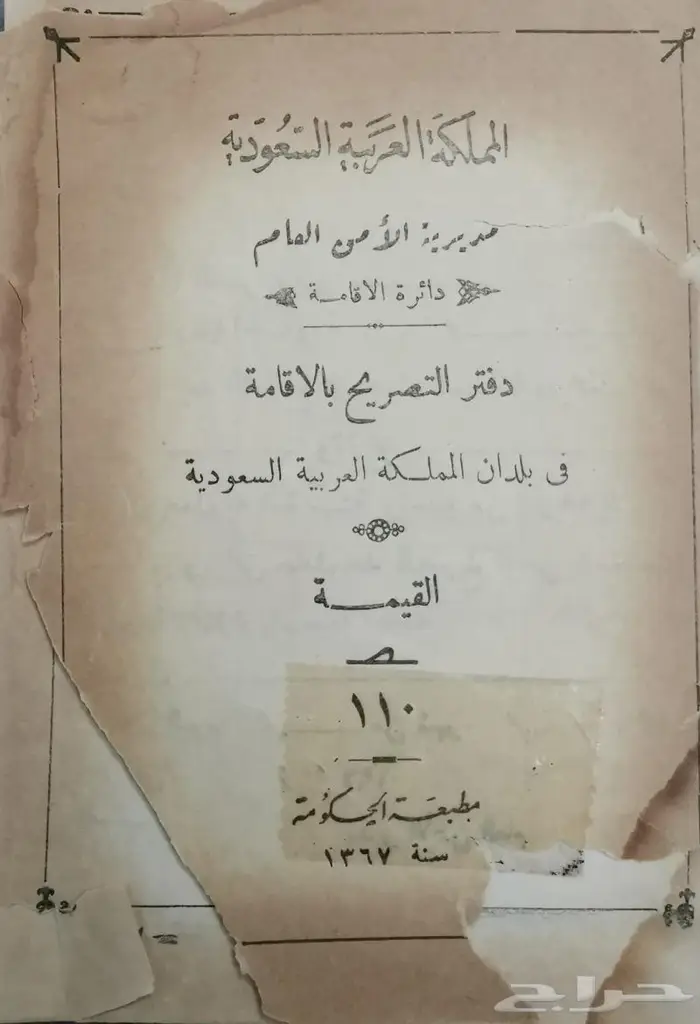 المملكة العربية السعودية
مديرية الأمن العام
دائرة الاقامة
دفتر التصريح بالاقامة
فى بلدان المملكة العربية السعودية
القيمة
١١٠
مطبعة الحكومة
سنة ١٣٦٧
حراج